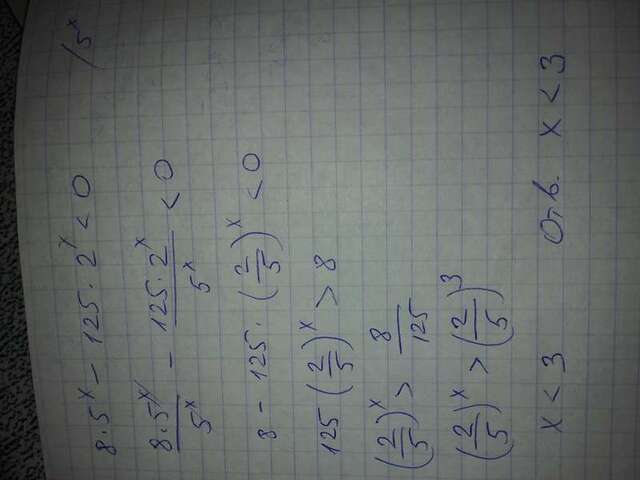 8·5^x − 125·2^x < 0 /5^x
8·5^x/5^x − 125·2^x/5^x < 0
8 − 125·(2/5)^x < 0
125(2/5)^x > 8
(2/5)^x > 8/125
(2/5)^x > (2/5)^3
x < 3 Отв. x < 3